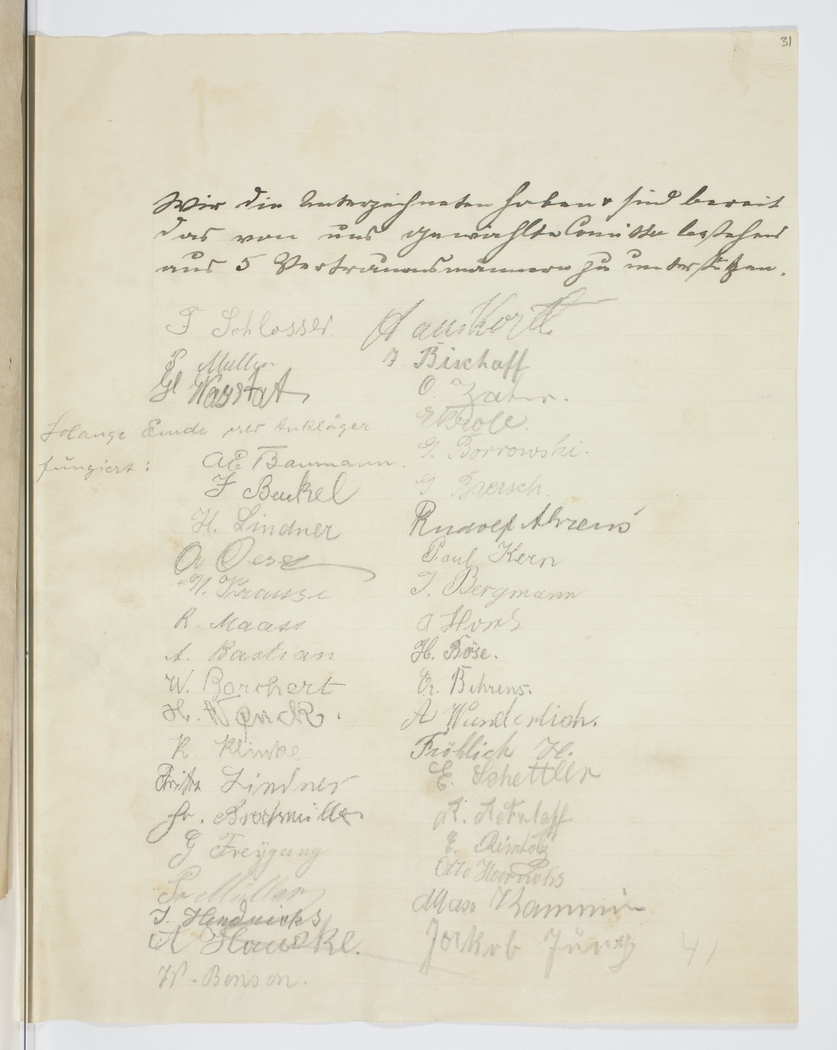 31
Wir die Unterzeichneten haben & sind bereit
das von uns gewählte Comitee bestehend
aus 5 Vertrauensmännern zu unterstützen.
Schlosser.
P. Müller
Solange Emde per Ankläger
fungiert:
AE Baumann.
F Benkel
H. Lindner
A Oese
W. Krause
R. Maass
A. Bastian
W. Borchert
H. Wenck.
K. Klinke
Fritz Lindner
G Freygang
Fr Müller
J. Hendricks
W. Benson.
Hans Kort
J. Bischoff
O.
G. Borrowski.
G Baersch.
Rudolf Ahrens
Paul Kern
J. Bergmann
H. Böse.
Behrens.
A Wunderlich.
Fröhlich H.
E. Schettler
E.
Otto
Max Kammin
Jackob Jung
41